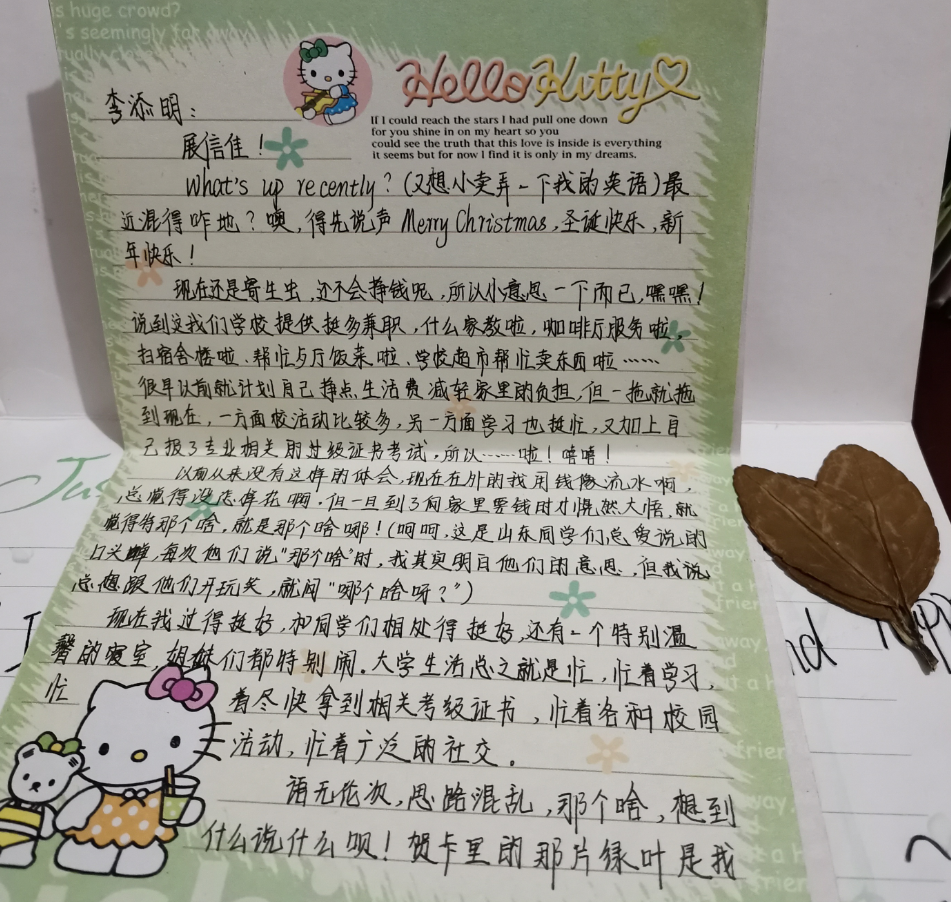 s huge crowd?
's seemingly far away
Hello Kitty
If I could reach the stars I had pull one down
for you shine in on my heart so you
could see the truth that this love is inside is everything
it seems but for now I find it is only in my dreams.
李添明：
展信佳！
What's up recently?（又想小卖弄一下我的英语）最
近混得咋地？噢，得先说声 Merry Christmas，圣诞快乐，新
年快乐！
现在还是寄生虫，还不会挣钱呢，所以小意思一下而已，嘿嘿！
说到这我们学校提供挺多兼职，什么家教啦，咖啡厅服务啦，
扫宿舍楼啦、帮忙与厅饭菜啦、学校超市帮忙卖东西啦……
很早以前就计划自己挣点生活费减轻家里的负担，但一拖就拖
到现在，一方面校活动比较多，另一方面学习也挺忙，又加上自
己报了专业相关的过级证书考试，所以……啦！嘻嘻！
以前从来没有这样的体会，现在在外的我用钱像流水啊，
总觉得没怎样花啊。但一旦到了向家里要钱时才恍然大悟，就
觉得特那个啥，就是那个啥哪！（呵呵，这是山东同学们总爱说的
口头蝉，每次他们说"那个啥"时，我其实明白他们的意思，但我说
总想跟他们开玩笑，就问"哪个啥呀？"）
现在我过得挺好，和同学们相处得挺好，还有一个特别温
馨的寝室，姐妹们都特别闹。大学生活总之就是忙，忙着学习，
忙着尽快拿到相关考级证书，忙着各种校园
活动，忙着广泛的社交。
语无伦次，思路混乱，那个啥，想到
什么说什么呗！贺卡里的那片绿叶是我